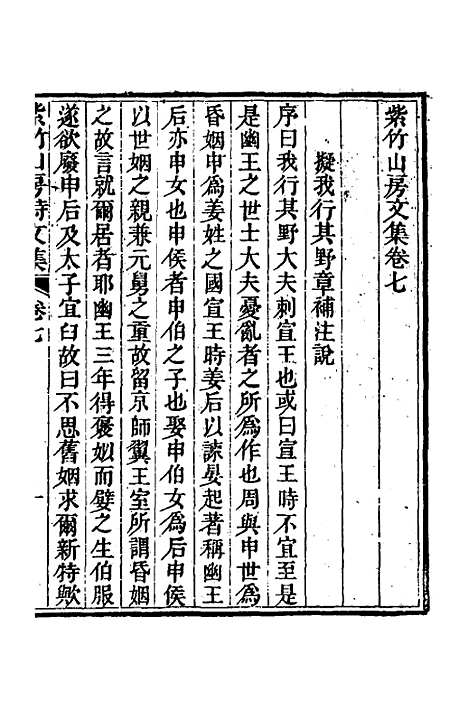 紫竹山房文集卷七
擬我行其野章補注說
序曰我行其野大夫刺宣王也或曰宣王時不宜至是
是幽王之世士大夫憂亂者之所爲作也周與申世爲
昏姻申爲姜姓之國宣王時姜后以諫晏起著稱幽王
后亦申女也申侯者申伯之子也娶申伯女爲后申侯
以世姻之親兼元舅之重故留京師翼王室所謂昏姻
之故言就爾居者耶幽王三年得褒姒而嬖之生伯服
遂欲廢申后及太子宜臼故曰不思舊姻求爾新特歟
紫竹山房詩文集
卷七
一